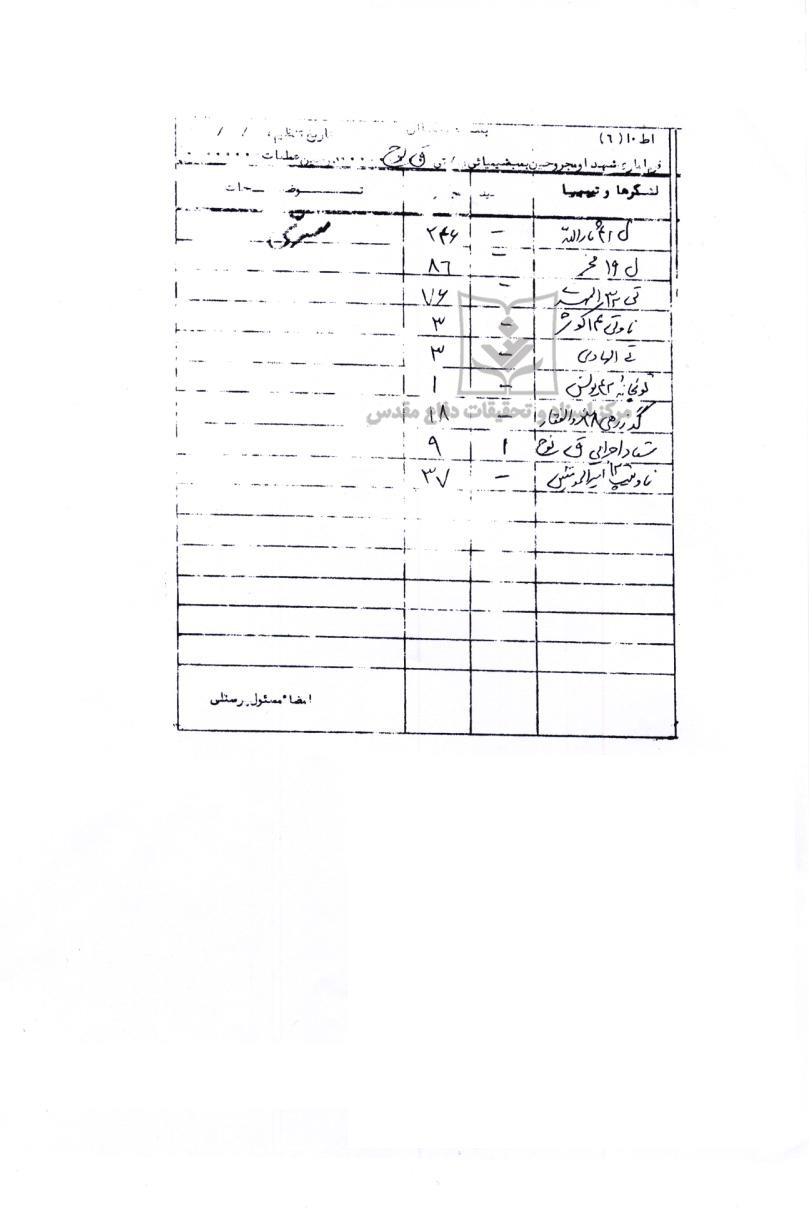 اط ۱۰ (٦) تاریخ تنظیم: / /
فرم آماری شهدا و مجروحین پشتیبانی / ق نوح عملیات
لشگرها و تیپها شهید مجروح توضیحات
ل ۴۱ ثارالله - ۲۴۶
ل ۱۹ فجر - ۸٦
تی ۳۳ المهدی - ۷۶
ناوتی ۱۴ کوثر - ۳
تی الهادی - ۳
توپخانه ۴۲ یونس - ۱
گد زرهی ۳۸ ذوالفقار - ۱۸
ستاد اجرایی ق نوح ۱ ۹
ناوتیپ ۱۳ امیرالمومنین - ۳۷
امضاء مسئول پرسنلی
مرکز اسناد و تحقیقات دفاع مقدس